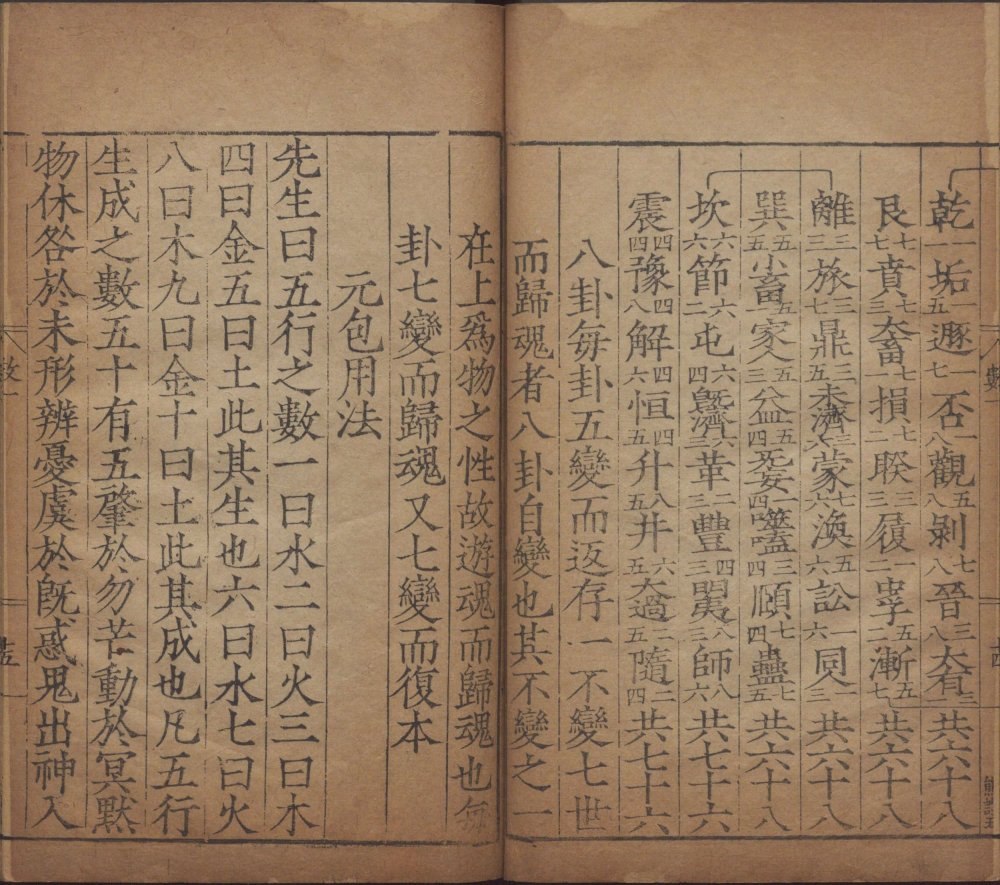 乾一一垢一五遯一七否一八觀五八剝七八晉三八大有三一共六十八
艮七七賁七三大畜七一損七二睽三二履一二中孚五二漸五七共六十八
離三三旅三七鼎三五未濟三六蒙七六渙五六訟一六同人一三共六十八
巽五五小畜五一家人五三益五四无妄一四噬嗑三四頤七四蠱七五共六十八
坎六六節六二屯六四既濟六三革二三豐四三明夷八三師八六共七十六
震四四豫四八解四六恒四五升八五井六五大過二五隨二四共七十六
八卦每卦五變而返存一不變七世
而歸魂者八卦自變也其不變之一
在上爲物之性故遊魂而歸魂也每
卦七變而歸魂又七變而復本
元包用法
先生曰五行之數一曰水二曰火三曰木
四曰金五曰土此其生也六曰水七曰火
八曰木九曰金十曰土此其成也凡五行
生成之數五十有五肇於勿芒動於冥默
物休咎於未形辨憂虞於既惑鬼出神入